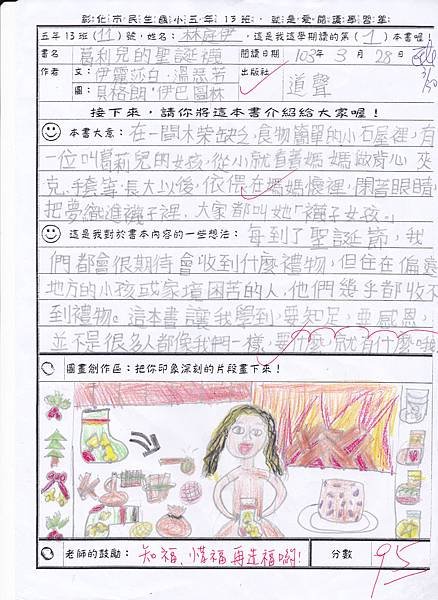 彰化市民生國小三年13班，就是愛閱讀學習單
三年13班(11)號，姓名：林 伊，這是我這學期讀的第(1)本書喔！
書名 葛莉兒的聖誕襪 閱讀日期 103年3月28日
作者 文：伊羅莎白·溫慈若 出版社 道聲
圖：貝格朗·伊巴圖林
接下來，請你將這本書介紹給大家喔！
本書大意：在一間木柴缺乏、食物簡單的小石屋裡，有
一位叫葛莉兒的女孩，從小就看著媽媽做背心、夾
克、手套等，長大以後，依偎在媽媽懷裡，閉著眼睛，
把夢織進襪子裡，大家都叫她「襪子女孩。」
這是我對於書本內容的一些想法：每到了聖誕節，我
們都會很期待會收到什麼禮物，但住在偏遠
地方的小孩或家境困苦的人，他們幾乎都收不
到禮物。這本書讓我學到要知足，要感恩，
並不是很多人都像我們一樣，要什麼，就有什麼哦
圖畫創作區：把你印象深刻的片段畫下來！
老師的鼓勵：知福、惜福、再造福喲！ 分數 95